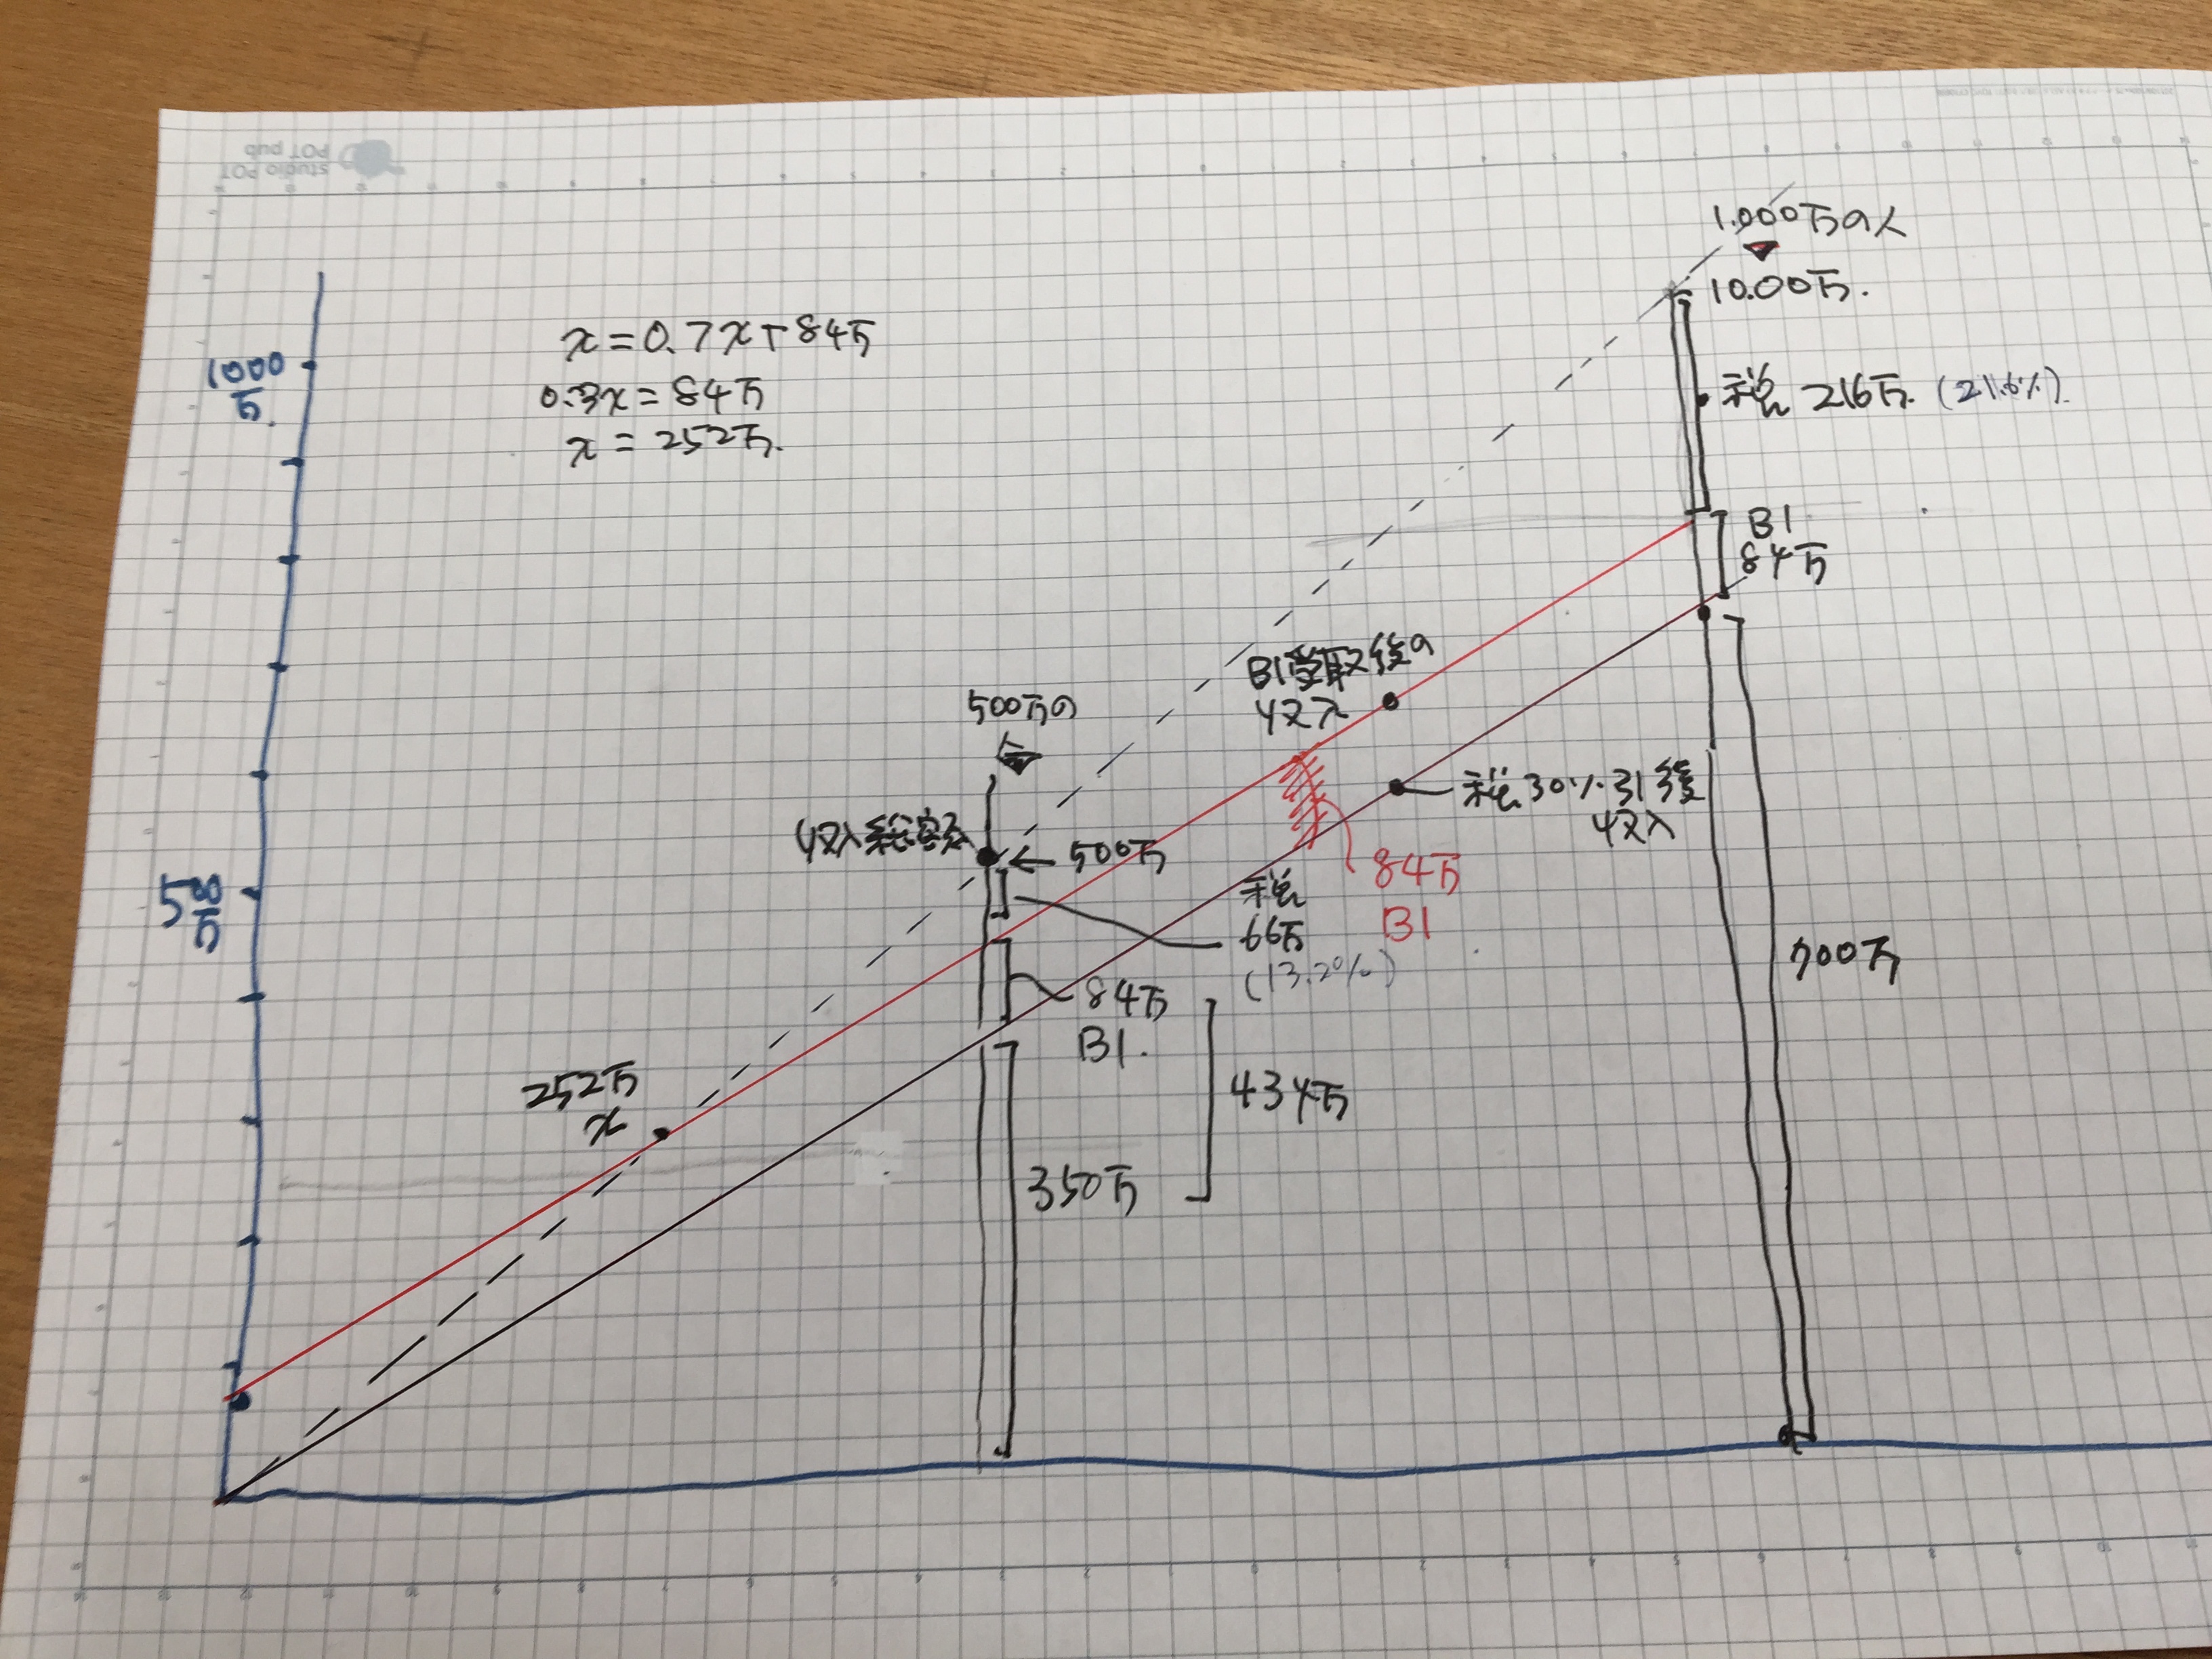 studio POT
POT pub
1.000万の人
10.00万.
税 216万. (21.6%).
BI
84万
x=0.7x+84万
0.3x=84万
x=252万.
1000
万.
BI受取後の
収入
500万の
人
税30%引後
収入
収入総額
500万
84万
BI
税
66万
(13.2%)
500
万
700万
84万
BI.
434万
252万
x
350万